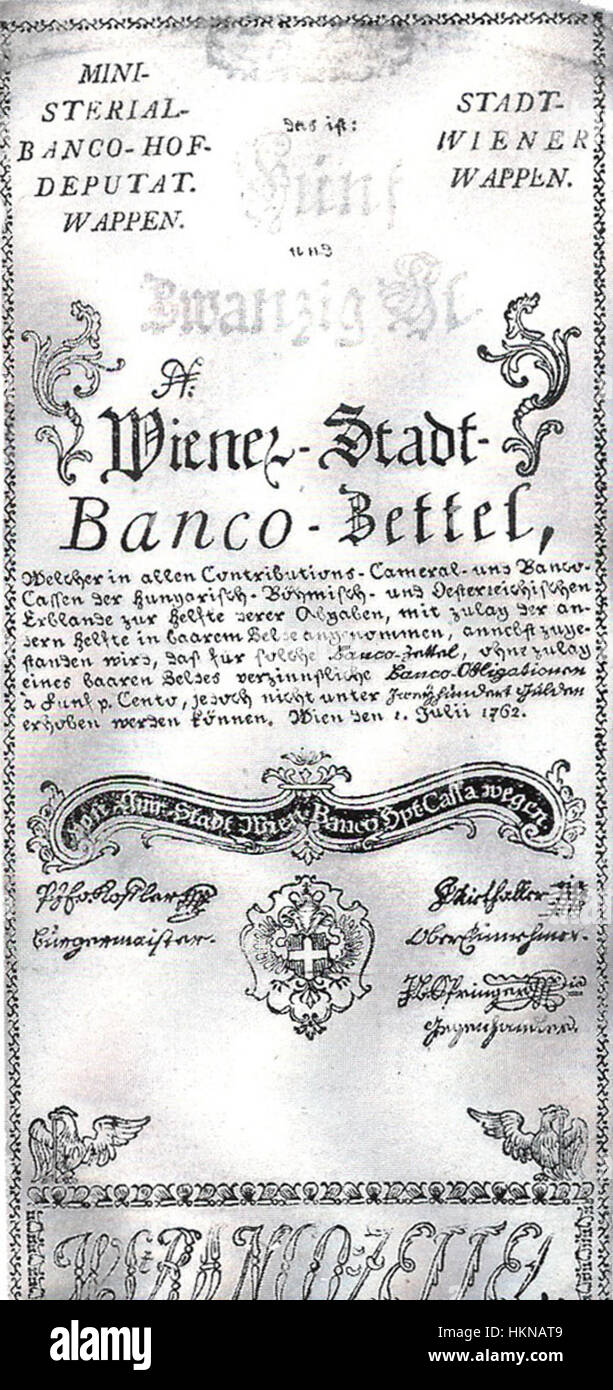 MINI-
STERIAL-
BANCO-HOF-
DEPUTAT.
WAPPEN.
das ist:
STADT-
WIENER
WAPPEN.
Fünf
und
Zwanzig Gl.
Wiener-Stadt-
Banco-Zettel,
Welcher in allen Contributions-Cameral-und Banco-
Cassen der Hungarisch-Böhmisch-und Oesterreichischen
Erblande zur Helfte derer Abgaben, mit zulag der an-
dern Helfte in baarem Gelde angenommen, annebst zuge-
standen wird, das für solche Banco-Zettel, ohne zulag
eines baaren Geldes verzinnsliche Banco-Obligationen
à Funf p. Cento, jedoch nicht unter Zweyhundert Gulden
erhoben werden können. Wien den 1. Julii 1762.
Stadt Wien Banco Hpt Cassa wegen
Burgermaister.
Ober Einnehmer.
Springer
Gegenhandler.
alamy
Image ID: HKNAT9
www.alamy.com